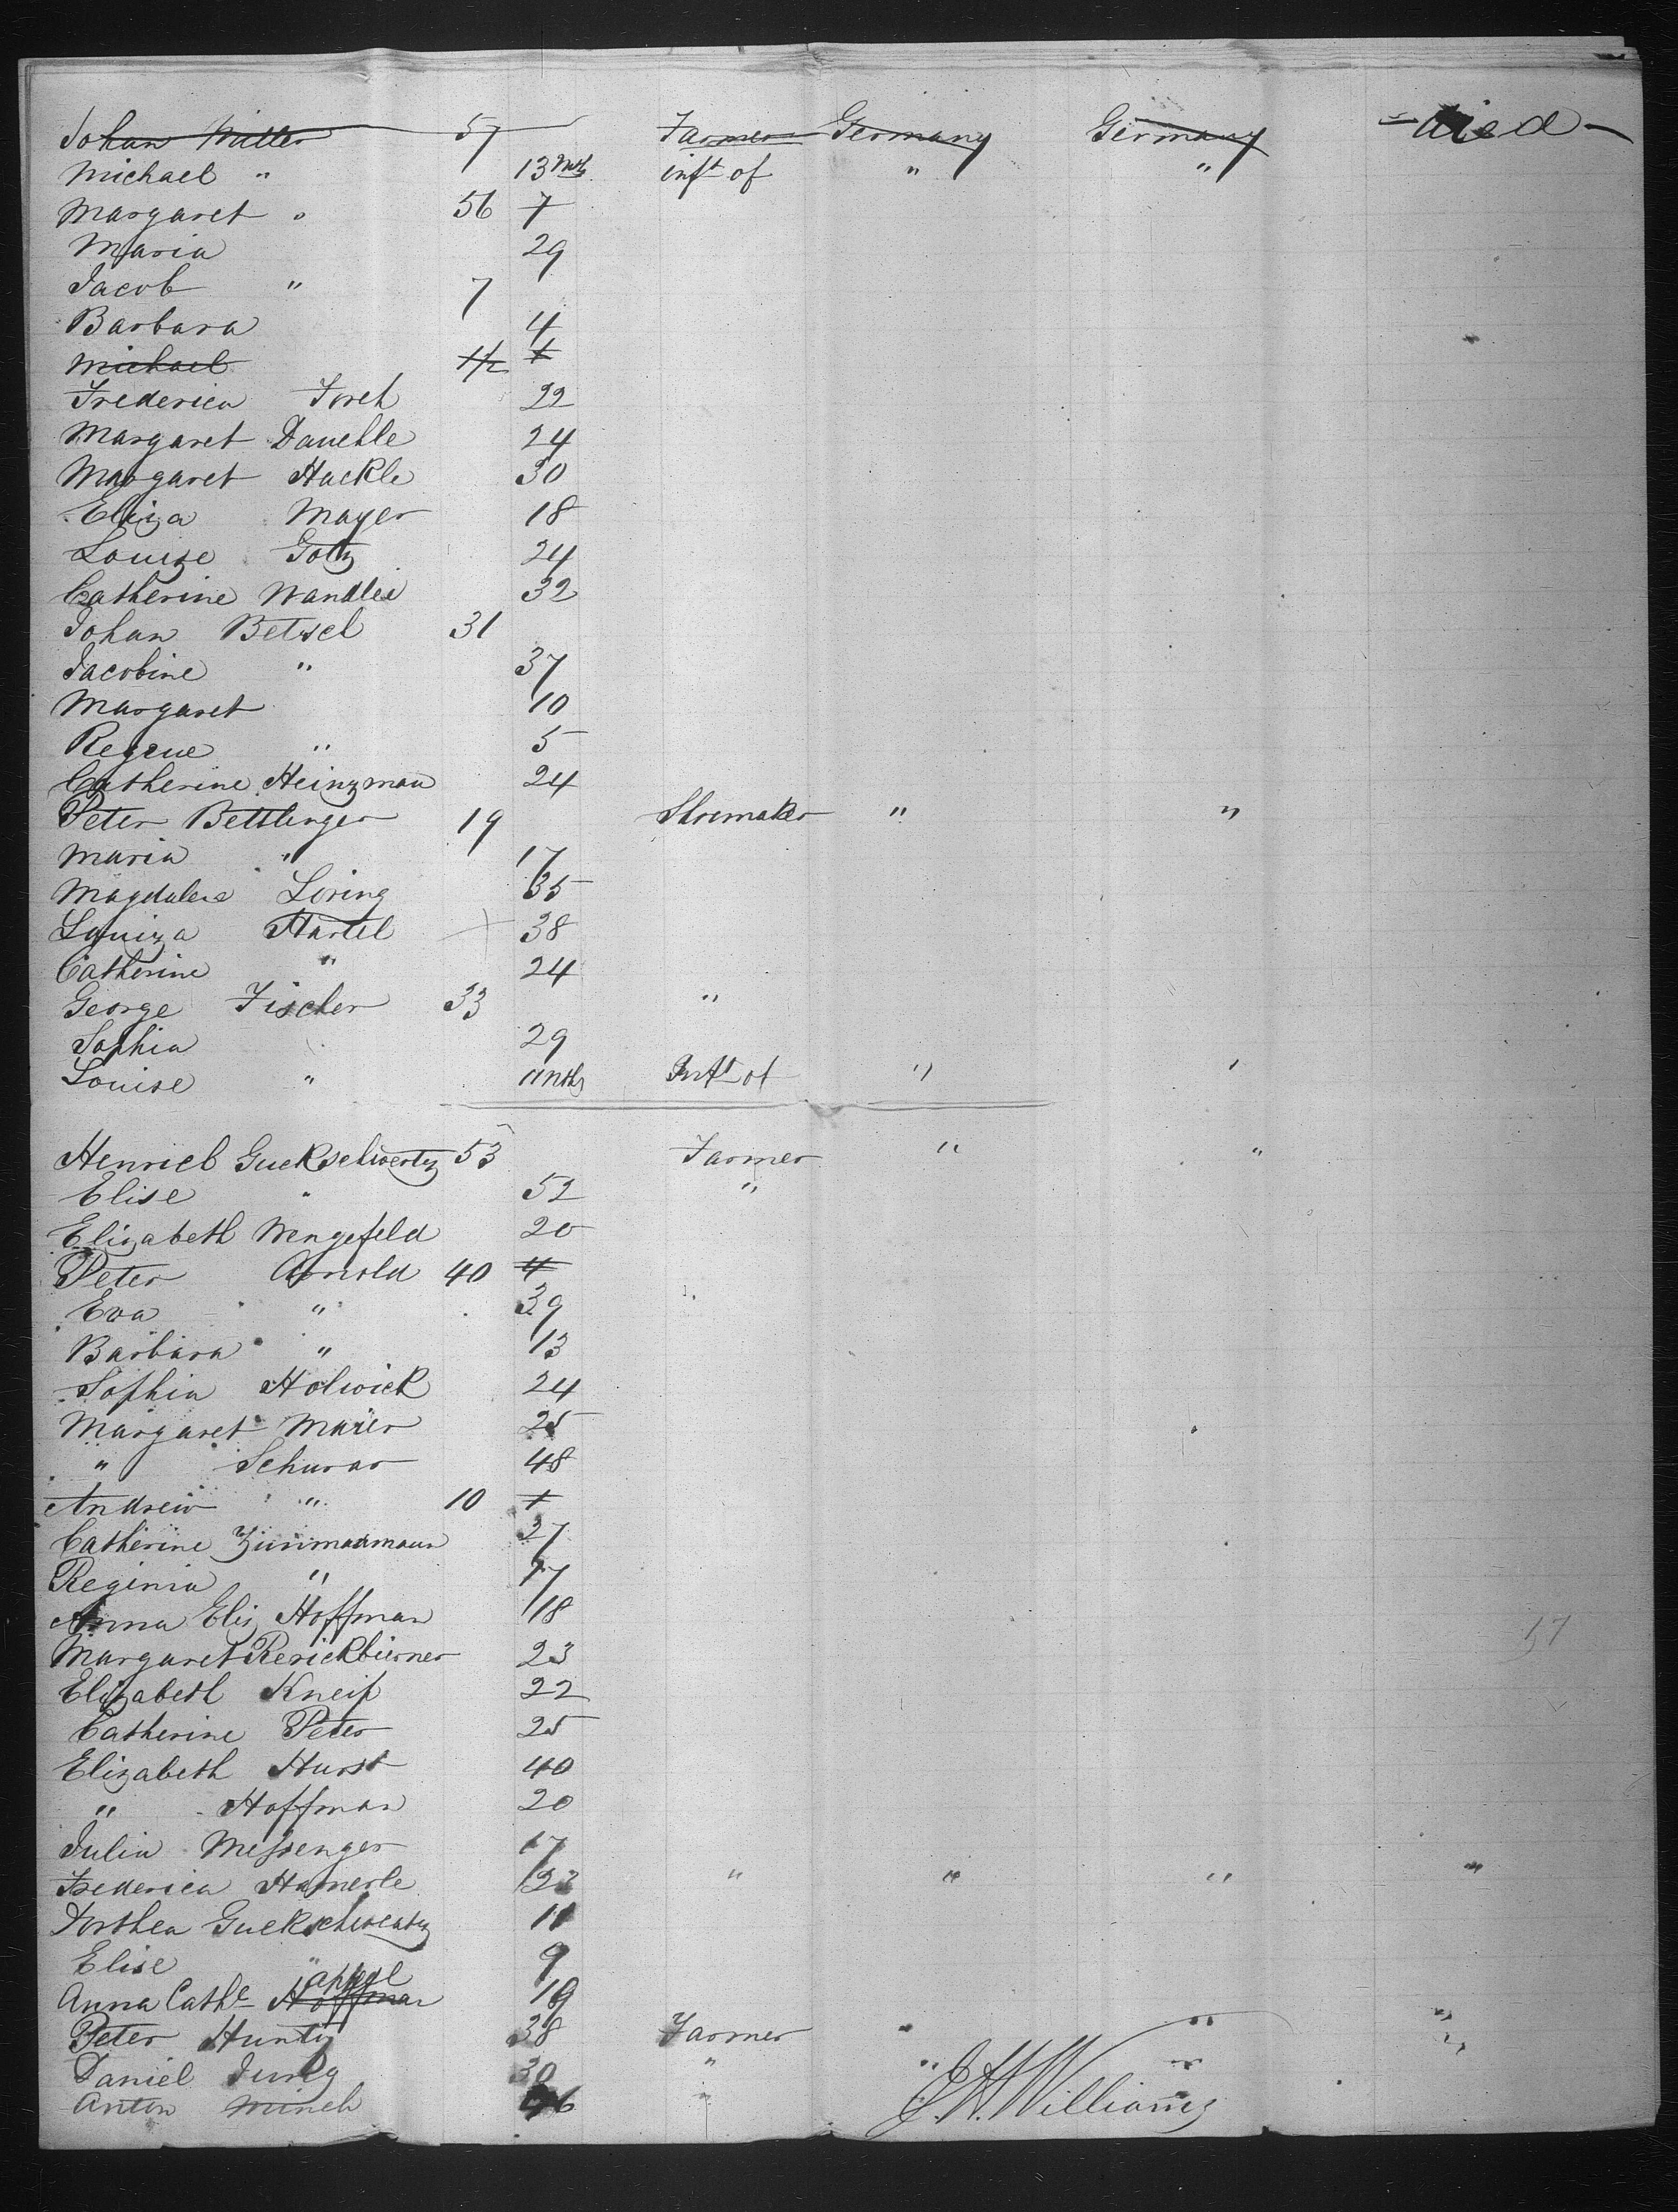 Johan Miller 57 Farmer Germany Germany - died -
Michael " 13 mths inft of " "
Margaret " 56 7
Maria 29
Jacob " 7
Barbara 4
Michael 1½ 1
Frederica Forch 22
Margaret Dauchle 24
Margaret Hackle 30
Eliza Mayer 18
Louise Gotz 24
Catherine Wandlei 32
Johan Betzsel 31
Jacobine " 37
Margaret 10
Regine " 5
Catherine Heinzman 24
Peter Bettlinger 19 Shoemaker " "
Maria " 17
Magdalena Loring 35
Louiza Hartel 38
Catherine " 24
George Fischer 33 "
Sophia 29
Louise " 11 mths Inft of " "
Henrich Guckschwertz 53 Farmer " "
Elise " 52 "
Elizabeth Wengefeld 20
Peter Arnold 40 4
Eva " 39
Barbara " 13
Sophia Holwick 24
Margaret Maier 25
" Schurar 48
Andrew " 10 1
Catherine Zimmarmann 27
Reginia " 17
Anna Elis Hoffman 18
Margaret Rerickbierner 23
Elizabeth Kneip 22
Catherine Peter 25
Elizabeth Hurst 40
" Hoffman 20
Julia Messenger 17
Frederica Hamerle 23 " " " "
Dorthea Guckschwertz 11
Elise " 9
Anna Cathe Hoffman appel 19
Peter Huntz 38 Farmer " " "
Daniel Jung 30 " " " "
Anton Minch 46 " J. H. Williams
57